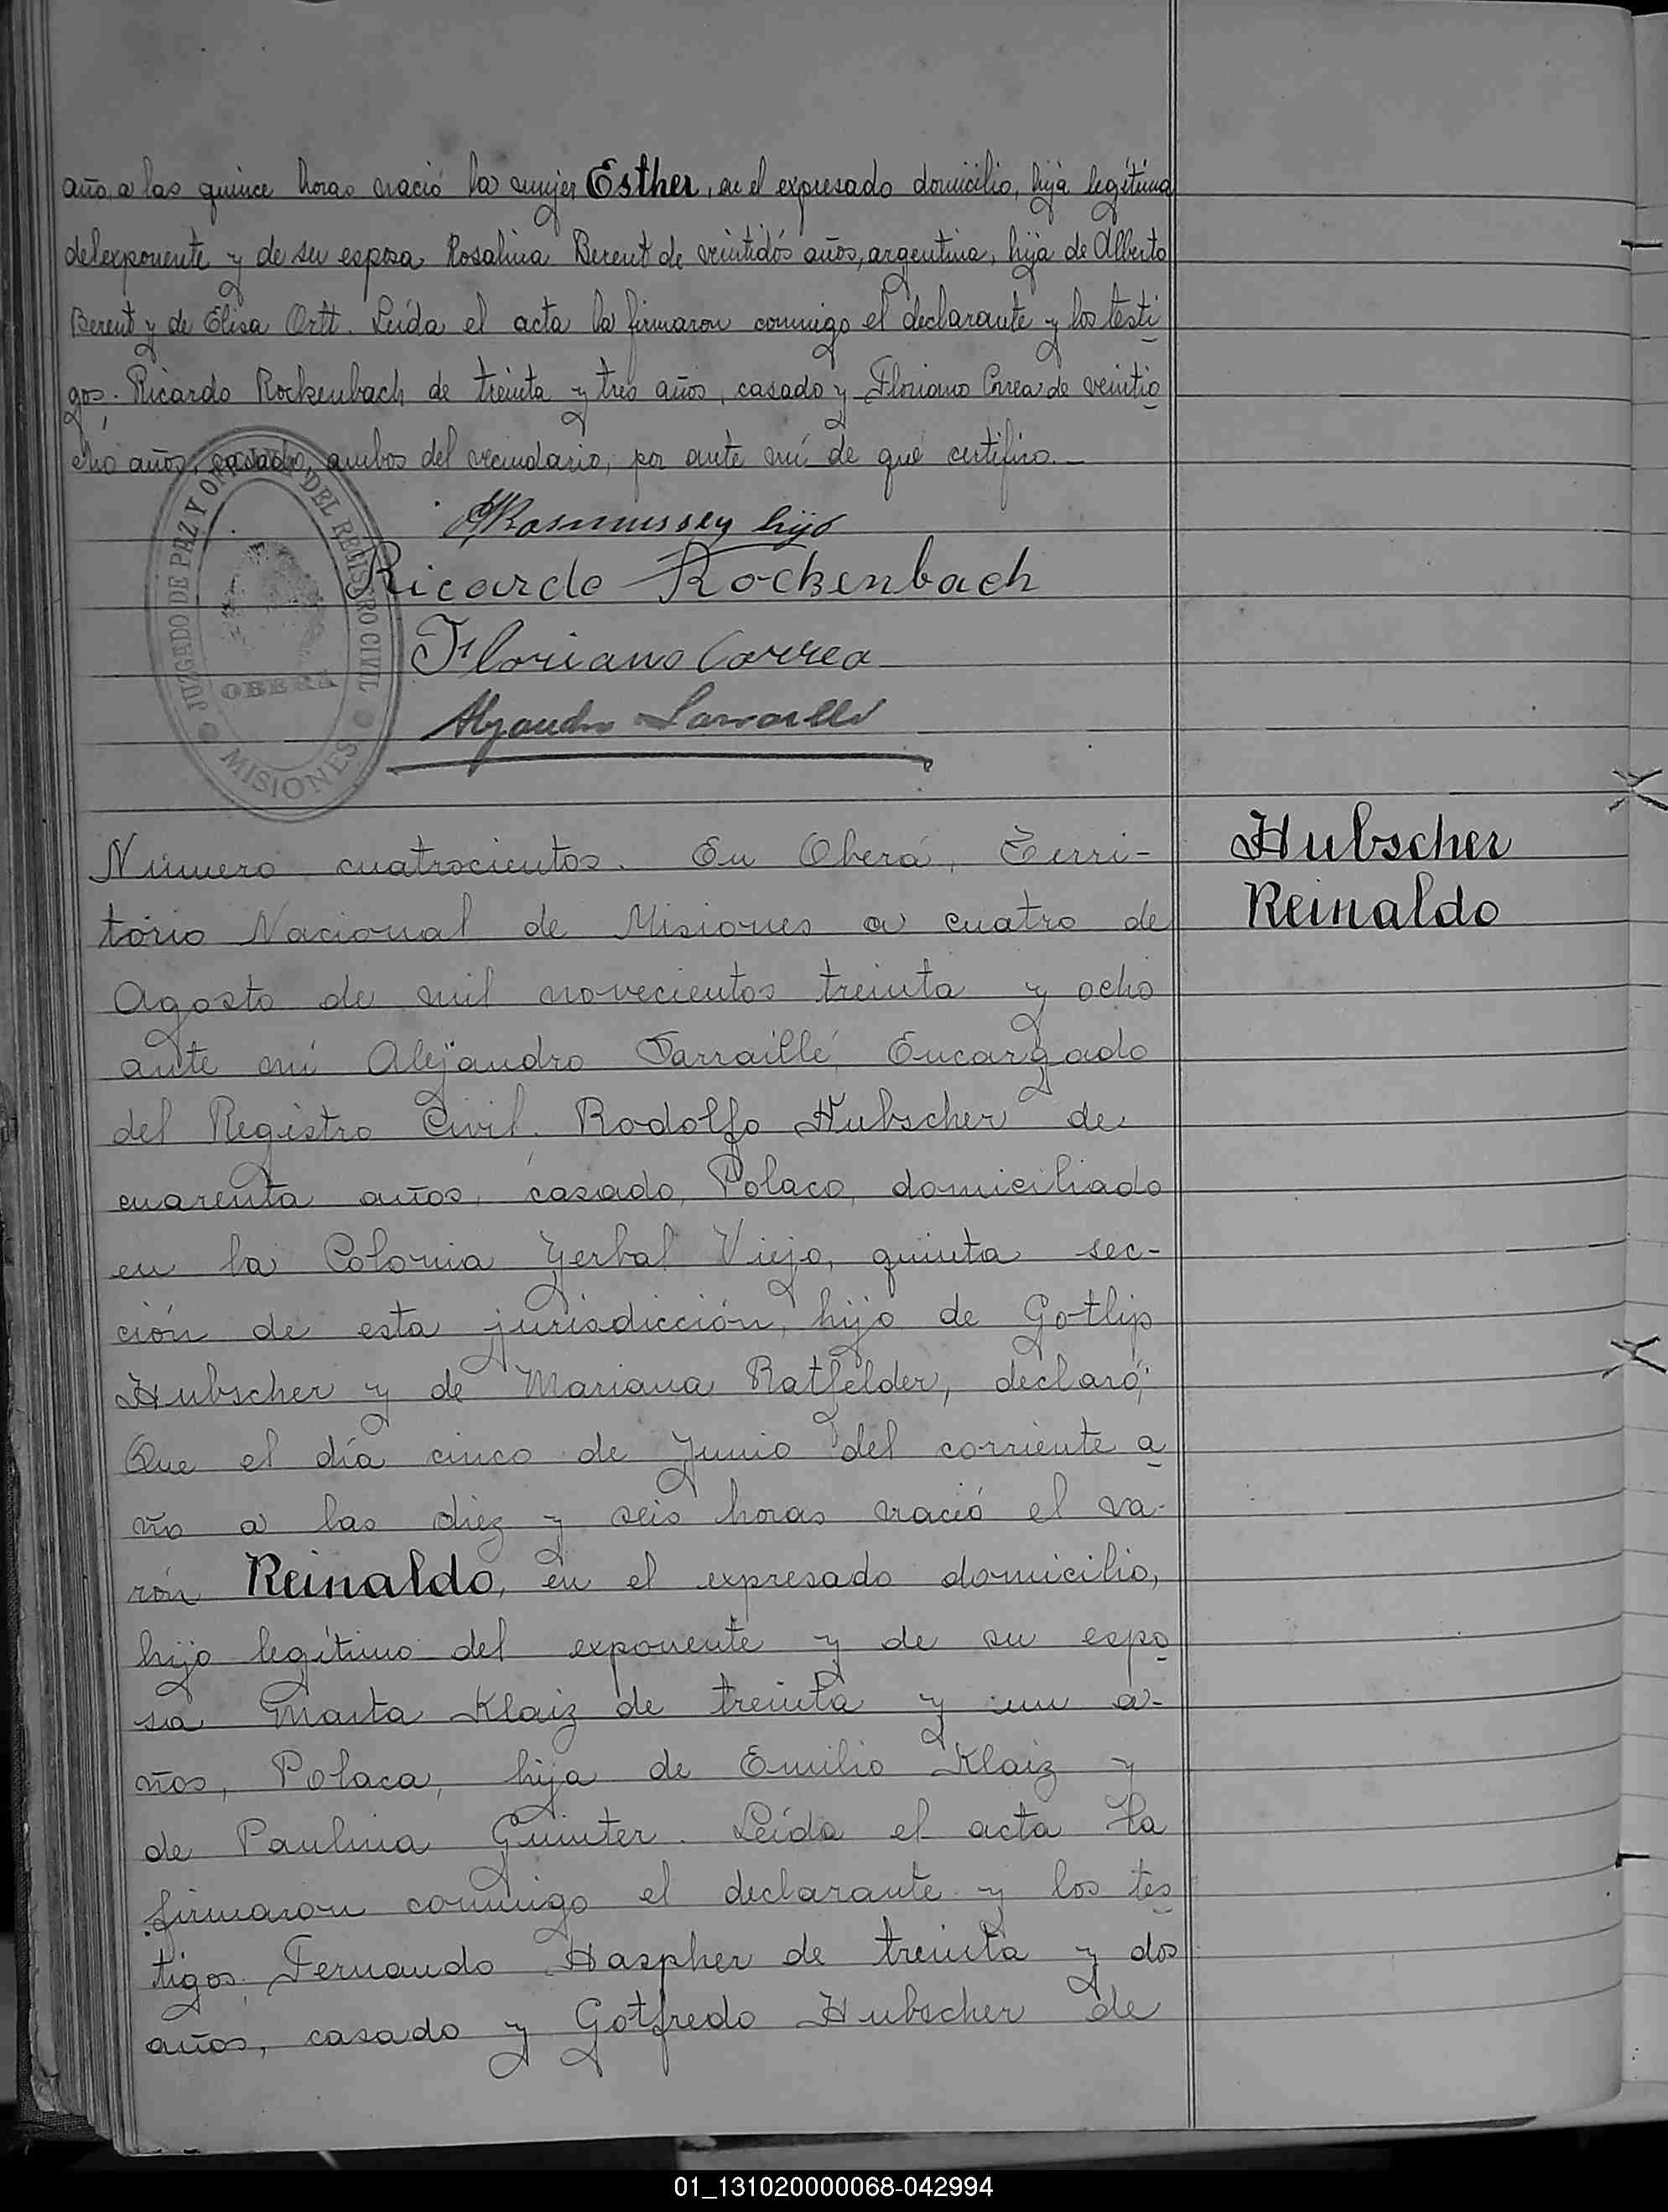 año, a las quince horas nació la mujer Esther, en el expresado domicilio, hija legítima
delexponente y de su esposa Rosalina Berent de veintidós años, argentina, hija de Alberto
Berent y de Elisa Ortt. Leída el acta la firmaron conmigo el declarante y los testi
gos. Ricardo Rockenbach de treinta y tres años, casado y Floriano Correa de veintio
cho años, casado, ambos del vecindario, por ante mí de que certifico.
Rasmussen hijo
Ricardo Rockenbach
Floriano Correa
Alejandro Larraillé
JUZGADO DE PAZ Y OFICINA DEL REGISTRO CIVIL
OBERA
MISIONES
Hubscher
Reinaldo
Número cuatrocientos. En Oberá, Terri-
torio Nacional de Misiones a cuatro de
Agosto de mil novecientos treinta y ocho
ante mí Alejandro Larraillé, Encargado
del Registro Civil. Rodolfo Hubscher de
cuarenta años, casado, Polaco, domiciliado
en la Colonia Yerbal Viejo, quinta sec-
ción de esta jurisdicción, hijo de Gotlip
Hubscher y de Mariana Ratfelder, declaró;
Que el día cinco de Junio del corriente a
ño a las diez y seis horas nació el va-
rón Reinaldo, en el expresado domicilio,
hijo legítimo del exponente y de su espo
sa Marta Klaiz de treinta y un a-
ños, Polaca, hija de Emilio Klaiz y
de Paulina Guinter. Leída el acta la
firmaron conmigo el declarante y los tes
tigos. Fernando Haspher de treinta y dos
años, casado y Gotfredo Hubscher de
01_131020000068-042994